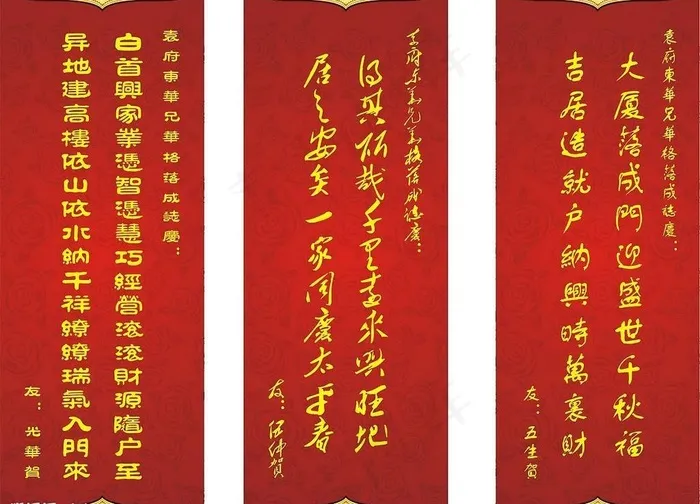 袁府東華兄華格落成誌慶：
白首興家業憑智憑慧巧經營滚滚財源隨户至
异地建高樓依山依水納千祥繚繚瑞氣入門來
友：光華賀
袁府東華兄華格落成誌慶：
得其所哉千里喜來興旺地
居之安矣一家同慶太平春
友：
袁府東華兄華格落成誌慶：
大厦落成門迎盛世千秋福
吉居造就户納興時萬裏財
友：五生賀